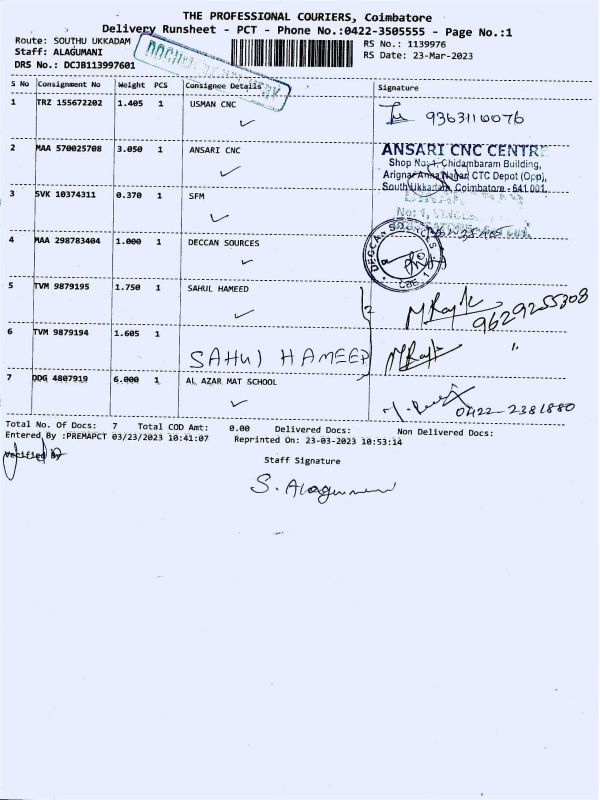 THE PROFESSIONAL COURIERS, Coimbatore
Delivery Runsheet - PCT - Phone No.:0422-3505555 - Page No.:1
Route: SOUTHU UKKADAM
RS No.: 1139976
Staff: ALAGUMANI
RS Date: 23-Mar-2023
DRS No.: DCJB113997601
S No Consignment No Weight PCS Consignee Details Signature
1 TRZ 155672202 1.405 1 USMAN CNC 9363110076
2 MAA 570025708 3.050 1 ANSARI CNC
ANSARI CNC CENTRE
Shop No:4, Chidambaram Building,
Arignar Anna Nagar, CTC Depot (Opp),
South Ukkadam, Coimbatore - 641 001.
3 SVK 10374311 0.370 1 SFM
No: 1,
4 MAA 298783404 1.000 1 DECCAN SOURCES
DECCAN SOURCES
5 TVM 9879195 1.750 1 SAHUL HAMEED 2 9629255308
6 TVM 9879194 1.605 1 SAHUl HAMEED "
7 ODG 4807919 6.000 1 AL AZAR MAT SCHOOL 0422-2381880
Total No. Of Docs: 7 Total COD Amt: 0.00 Delivered Docs: Non Delivered Docs:
Entered By :PREMAPCT 03/23/2023 10:41:07 Reprinted On: 23-03-2023 10:53:14
Verified By
Staff Signature
S. Alagumani